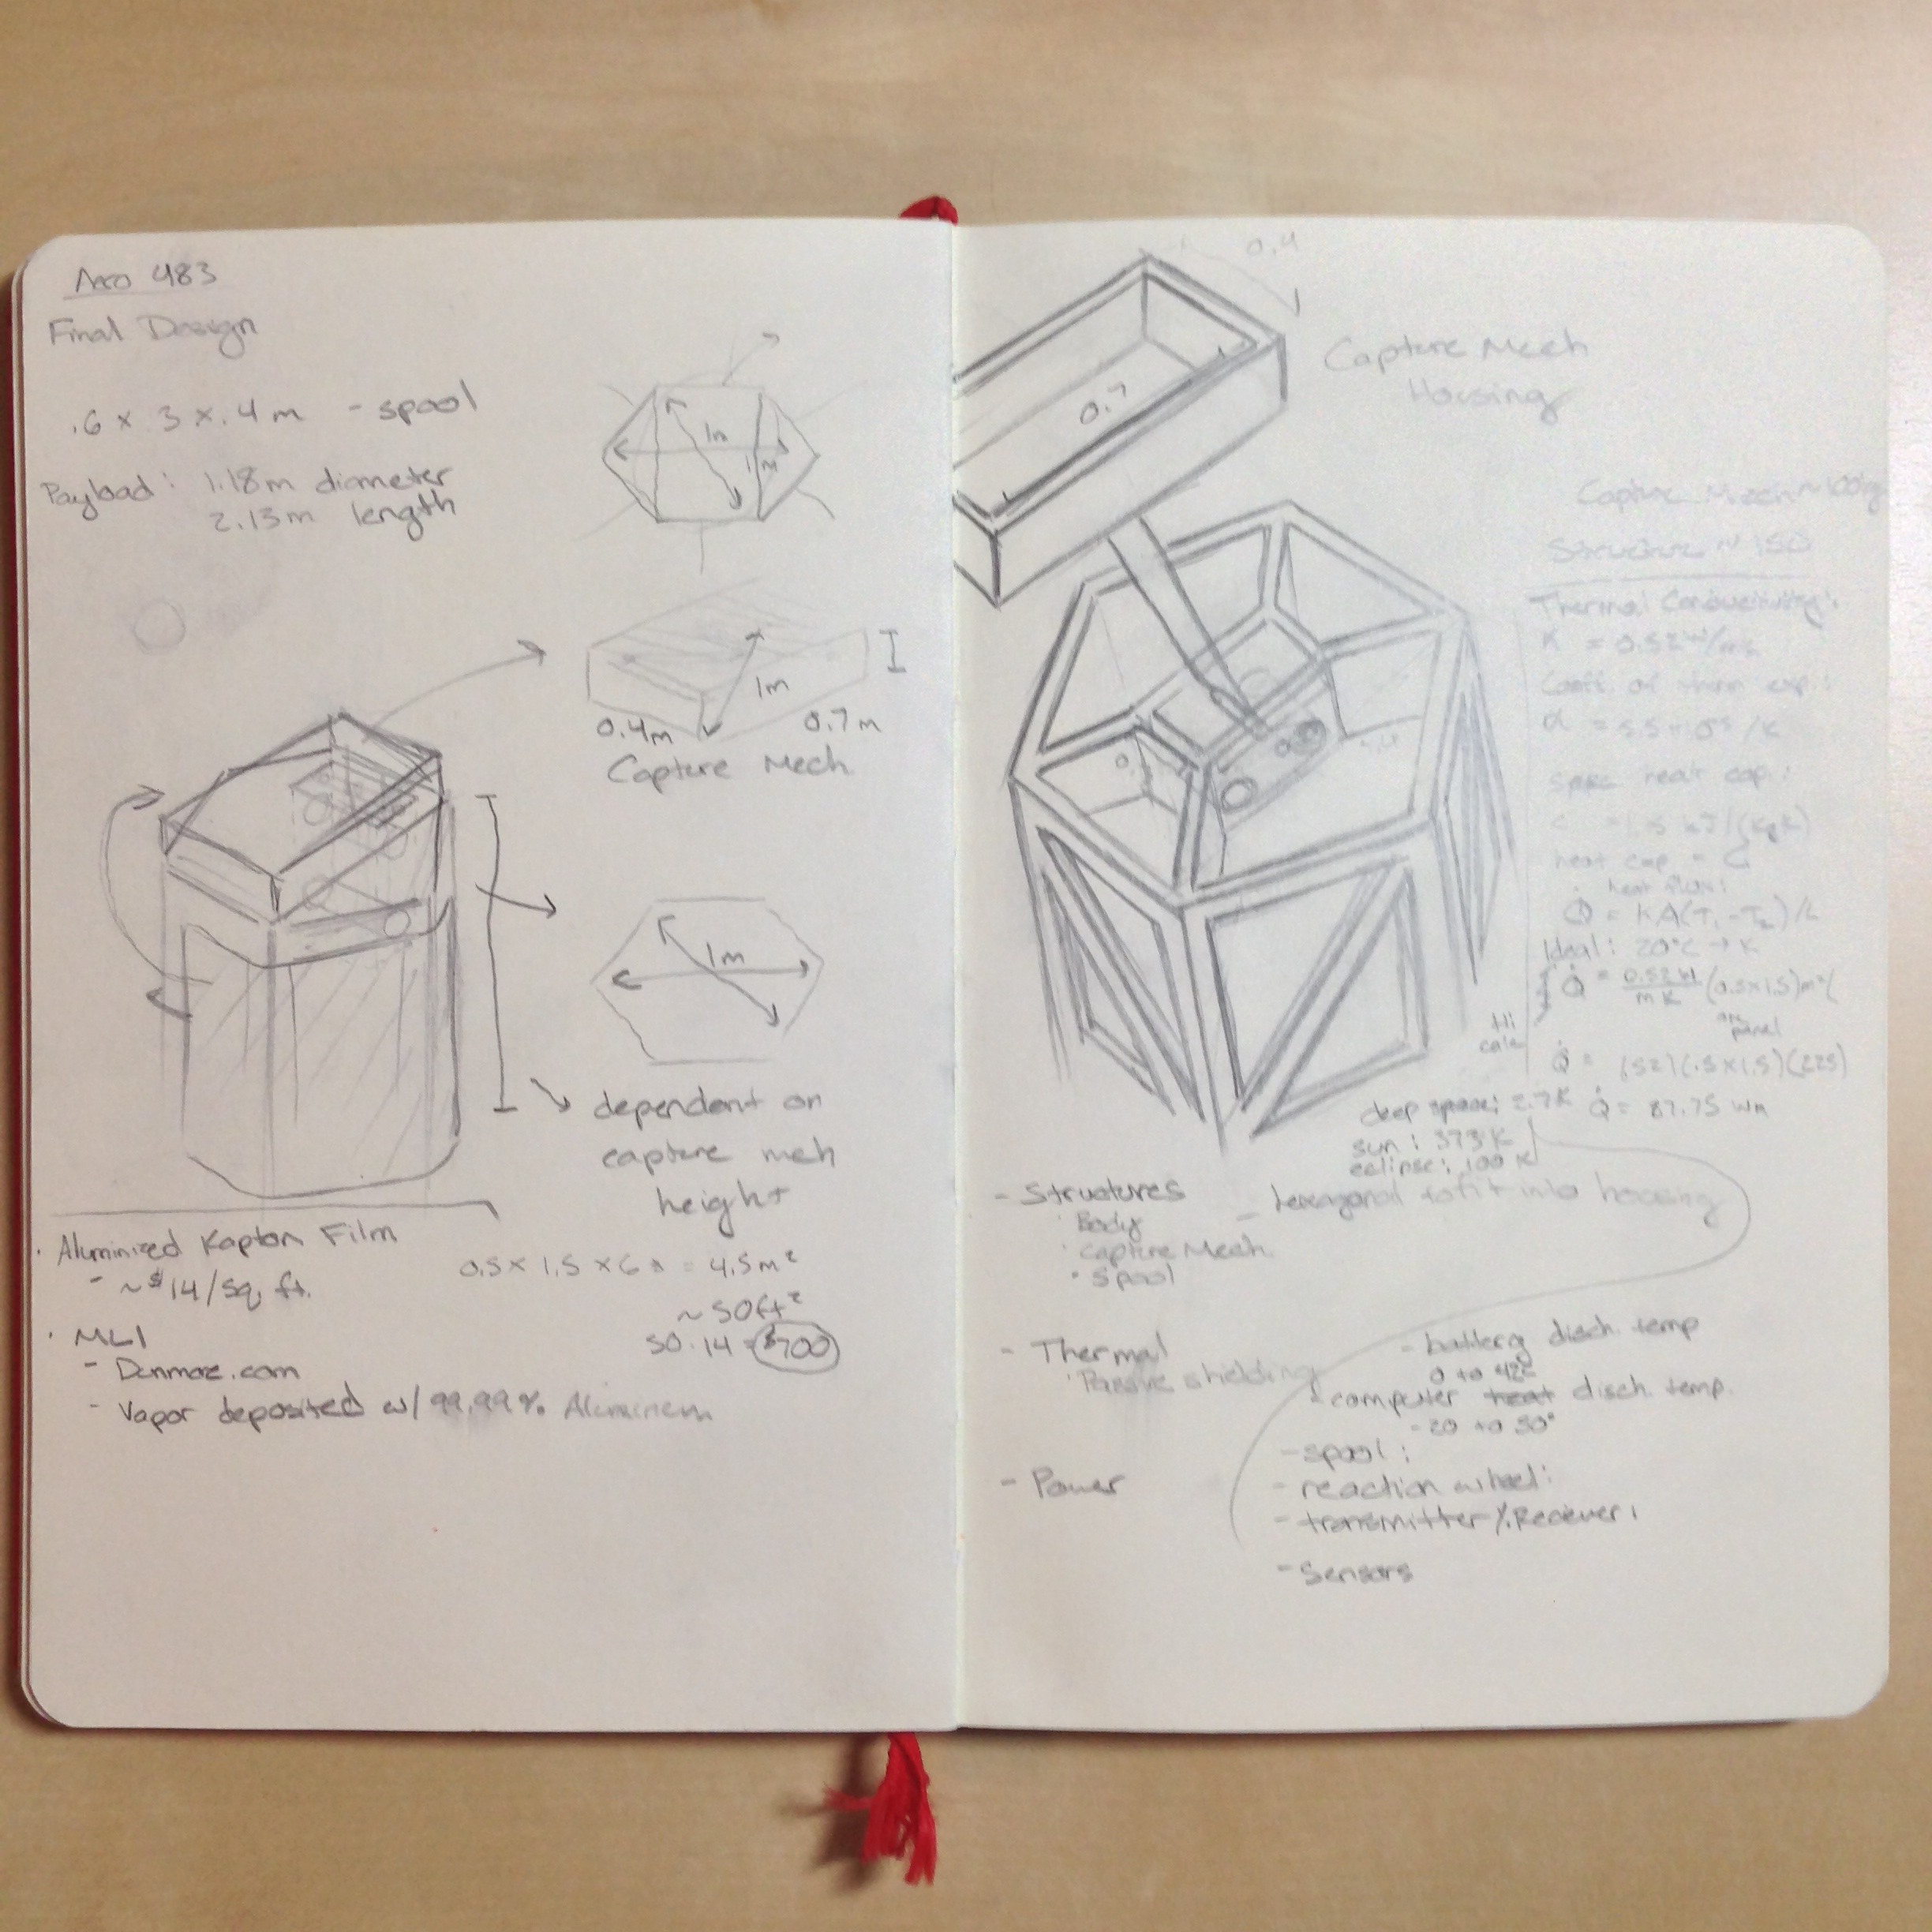 Aero 483
Final Design
.6 x .3 x .4 m - spool
Payload: 1.18m diameter
2.13m length
1m
1m
1m
0.4m
0.7m
Capture Mech
1m
dependent on
capture meh
height
· Aluminized Kapton Film
- ~$14/sq. ft.
0.5 x 1.5 x 6 = 4.5m²
~ 50ft²
50.14 = $700
· MLI
- Dunmore.com
- Vapor deposited w/ 99.99% Aluminum
0.4
0.7
Capture Mech
Housing
Capture Mech ~100kg
Structure ~ 150
Thermal Conductivity:
K = 0.52 W/mK
Coeff. of therm exp.:
α = 5.5×10⁻⁵ /K
spec heat cap.:
c = 1.5 kJ/(kgK)
heat cap = C
heat flux:
Q̇ = KA(T₁-T₂)/L
Ideal: 20°C → K
Q̇ = 0.52W/mK (0.5x1.5)m²(
panel
Q̇ = (.52)(.5x1.5)(225)
Q̇ = 87.75 Wm
deep space: 2.7K
sun: 373K
eclipse: 100K
- Structures - hexagonal to fit into housing
· Body
· Capture Mech.
· Spool
- Thermal
· Passive shielding
- battery disch. temp
0 to 45
- computer heat disch. temp.
-20 to 50°
- spool:
- Power
- reaction wheel:
- transmitter/Reciever:
- Sensors